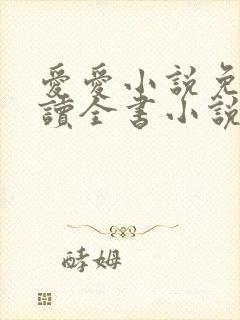 愛愛小說免
讀全書小說
酵姆